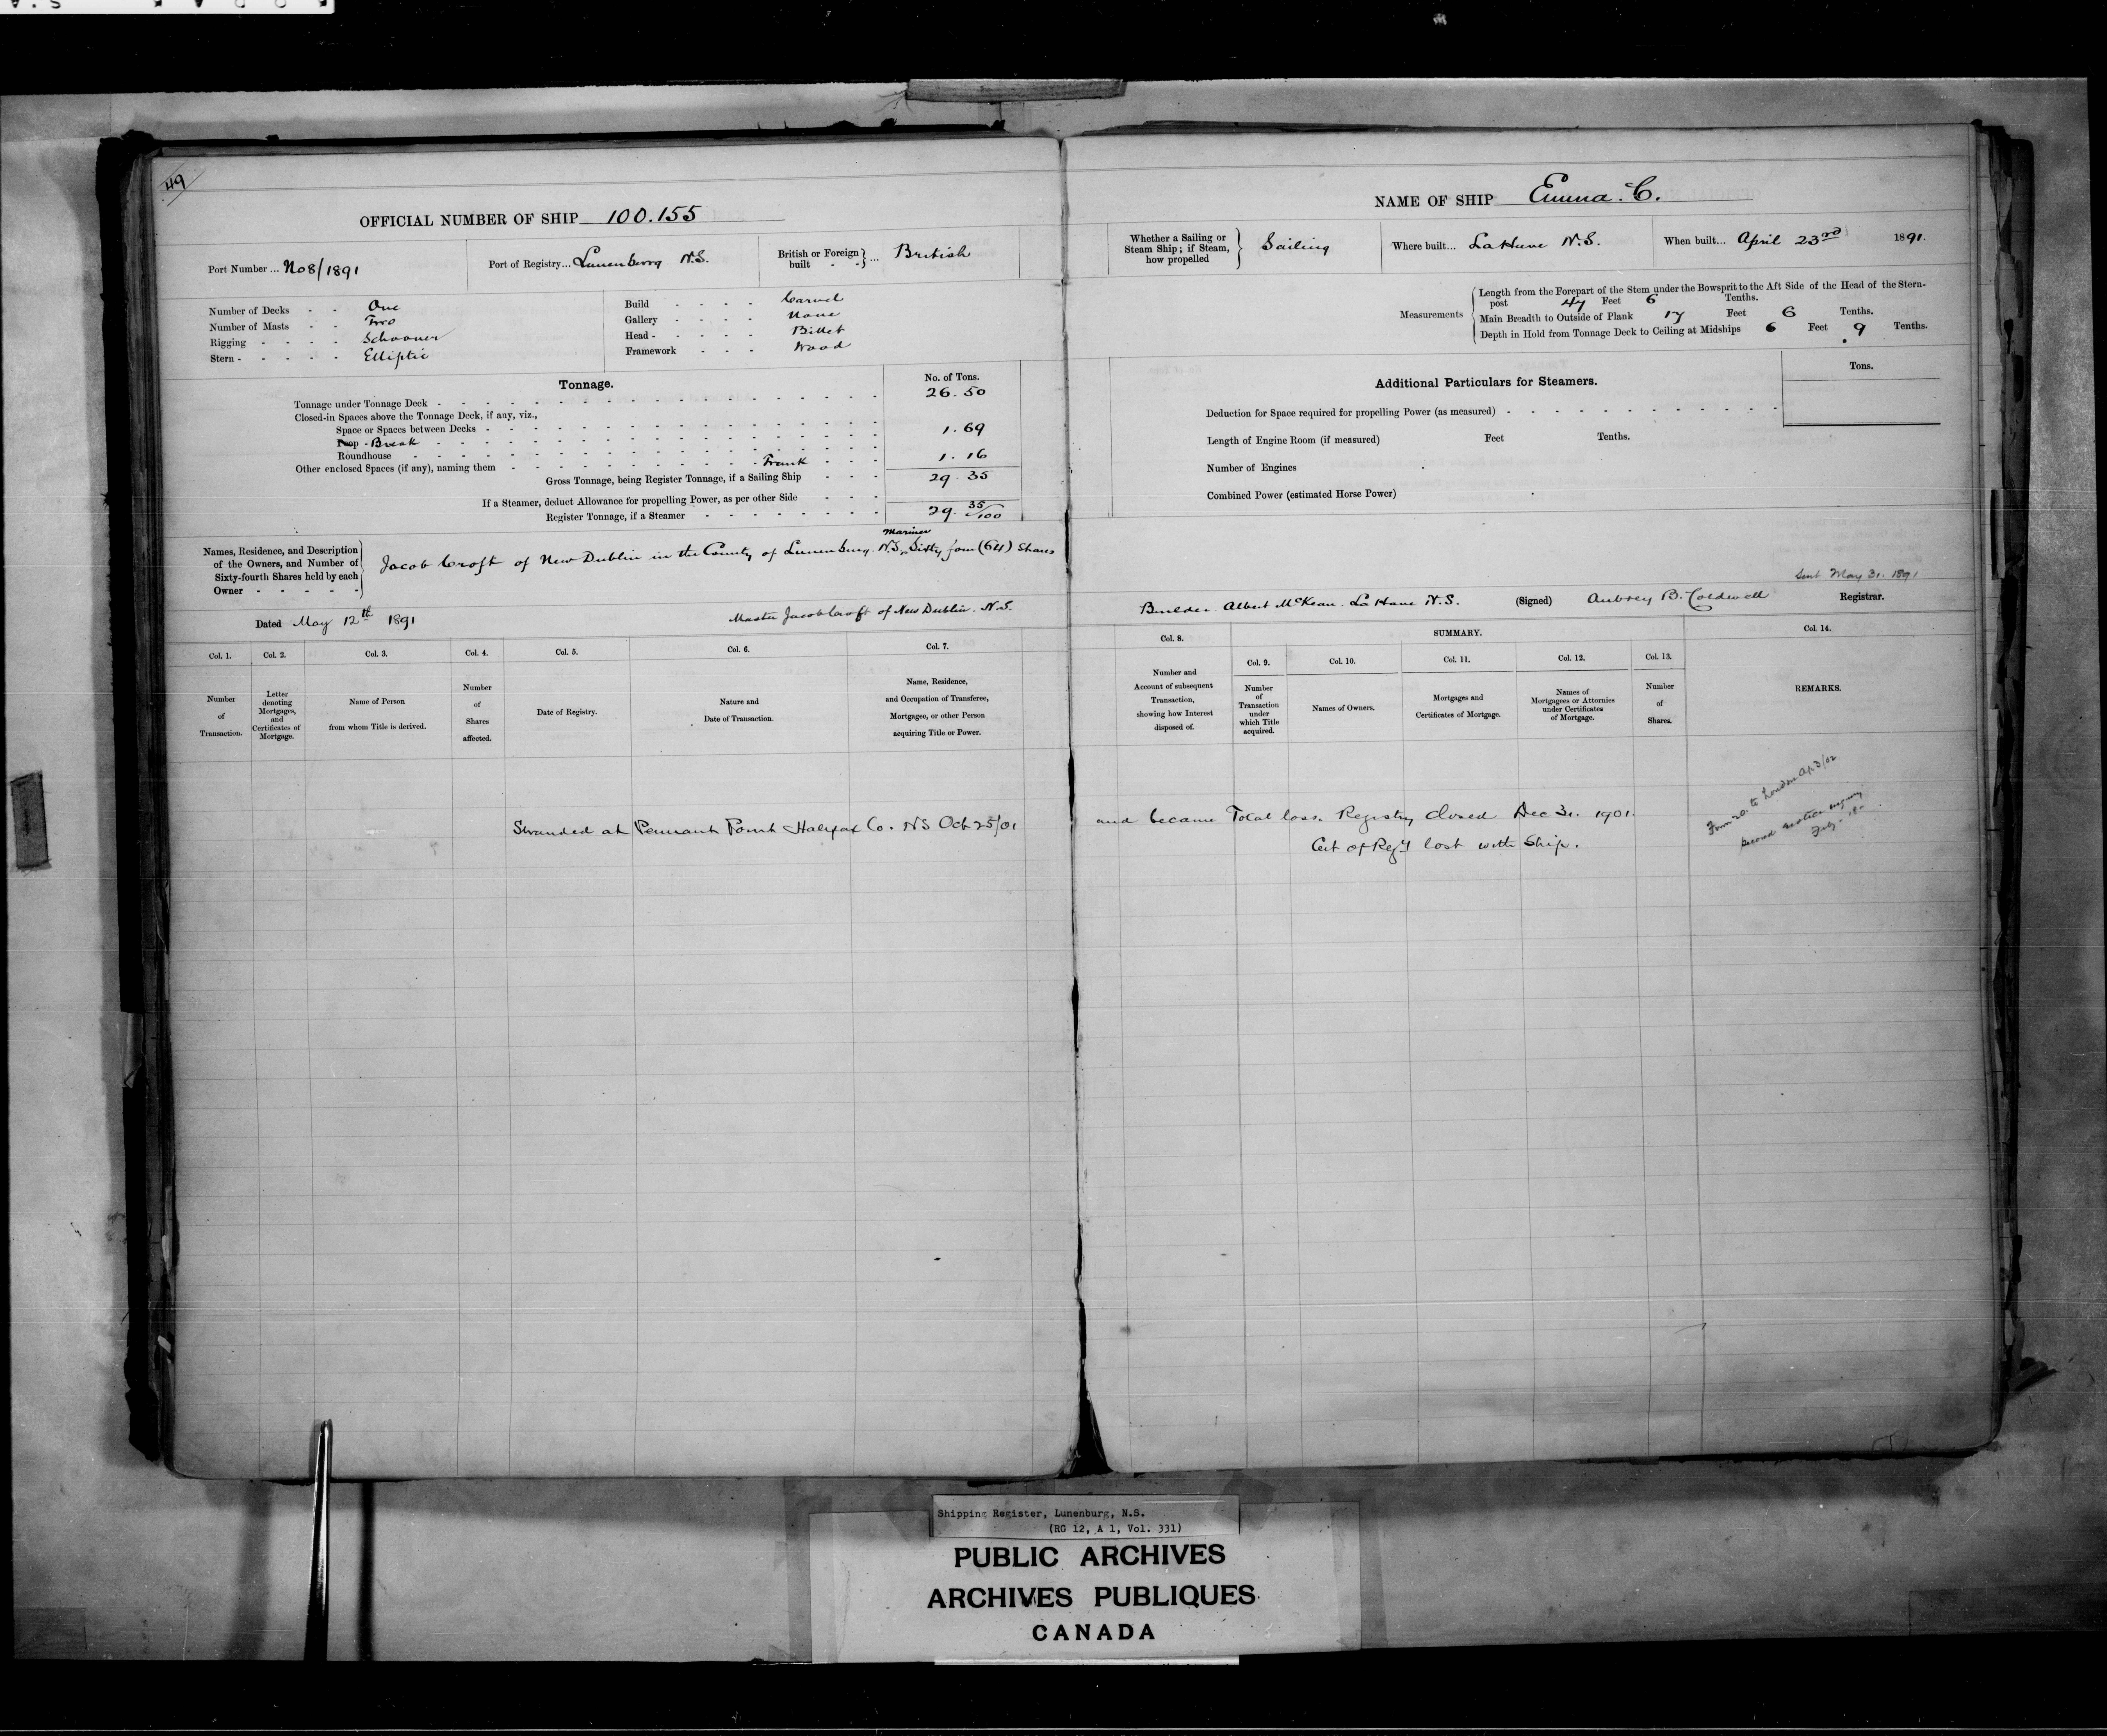 49
OFFICIAL NUMBER OF SHIP 100.155
Port Number ... No 8/1891
Port of Registry... Lunenburg N.S.
British or Foreign built - - } ... British
Number of Decks - - One
Number of Masts - - Two
Rigging - - - - Schooner
Stern - - - - - Elliptic
Build - - - - Carvel
Gallery - - - - None
Head - - - - - Billet
Framework - - - Wood
Tonnage.
No. of Tons.
Tonnage under Tonnage Deck - 26.50
Closed-in Spaces above the Tonnage Deck, if any, viz.,
Space or Spaces between Decks -
Poop - Break 1.69
Roundhouse
Other enclosed Spaces (if any), naming them - Trunk 1.16
Gross Tonnage, being Register Tonnage, if a Sailing Ship - - - 29.35
If a Steamer, deduct Allowance for propelling Power, as per other Side - - -
Register Tonnage, if a Steamer - 29. 35/100
Names, Residence, and Description
of the Owners, and Number of
Sixty-fourth Shares held by each
Owner - - - - -
Mariner
Jacob Croft of New Dublin in the County of Lunenburg. N.S, Sixty four (64) Shares
Dated May 12th 1891
Master Jacob Croft of New Dublin. N.S.
Col. 1. Number of Transaction.
Col. 2. Letter denoting Mortgages, and Certificates of Mortgage.
Col. 3. Name of Person from whom Title is derived.
Col. 4. Number of Shares affected.
Col. 5. Date of Registry.
Col. 6. Nature and Date of Transaction.
Col. 7. Name, Residence, and Occupation of Transferee, Mortgagee, or other Person acquiring Title or Power.
Stranded at Pennant Point Halifax Co. NS Oct 25/01
NAME OF SHIP Emma. C.
Whether a Sailing or Steam Ship; if Steam, how propelled } Sailing
Where built... LaHave N.S.
When built... April 23rd 1891.
Measurements
Length from the Forepart of the Stem under the Bowsprit to the Aft Side of the Head of the Stern-
post 47 Feet 6 Tenths.
Main Breadth to Outside of Plank 17 Feet 6 Tenths.
Depth in Hold from Tonnage Deck to Ceiling at Midships 6 Feet 9 Tenths.
Additional Particulars for Steamers.
Tons.
Deduction for Space required for propelling Power (as measured) -
Length of Engine Room (if measured) Feet Tenths.
Number of Engines
Combined Power (estimated Horse Power)
Sent May 31. 1891
Builder Albert McKean. LaHave N.S. (Signed) Aubrey B. Caldwell Registrar.
Col. 8. Number and Account of subsequent Transaction, showing how Interest disposed of.
SUMMARY.
Col. 9. Number of Transaction under which Title acquired.
Col. 10. Names of Owners.
Col. 11. Mortgages and Certificates of Mortgage.
Col. 12. Names of Mortgagees or Attornies under Certificates of Mortgage.
Col. 13. Number of Shares.
Col. 14. REMARKS.
and became Total loss. Registry closed Dec 31. 1901.
Cert of Regy lost with Ship.
Form 20. to London Ap 3/02
Shipping Register, Lunenburg, N.S.
(RG 12, A 1, Vol. 331)
PUBLIC ARCHIVES
ARCHIVES PUBLIQUES
CANADA